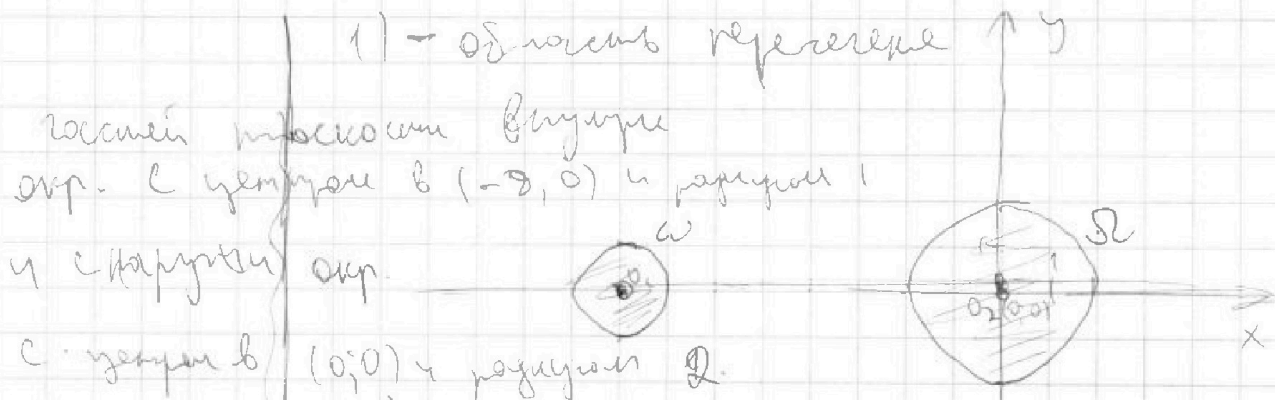 1) - область пересечения
частей плоскости внутри
окр. с центром в (-8, 0) и радиусом 1
и снаружи окр.
с центром в (0;0) и радиусом 2.
y
ω
Ω
O₁
O₂ (0,0)
x